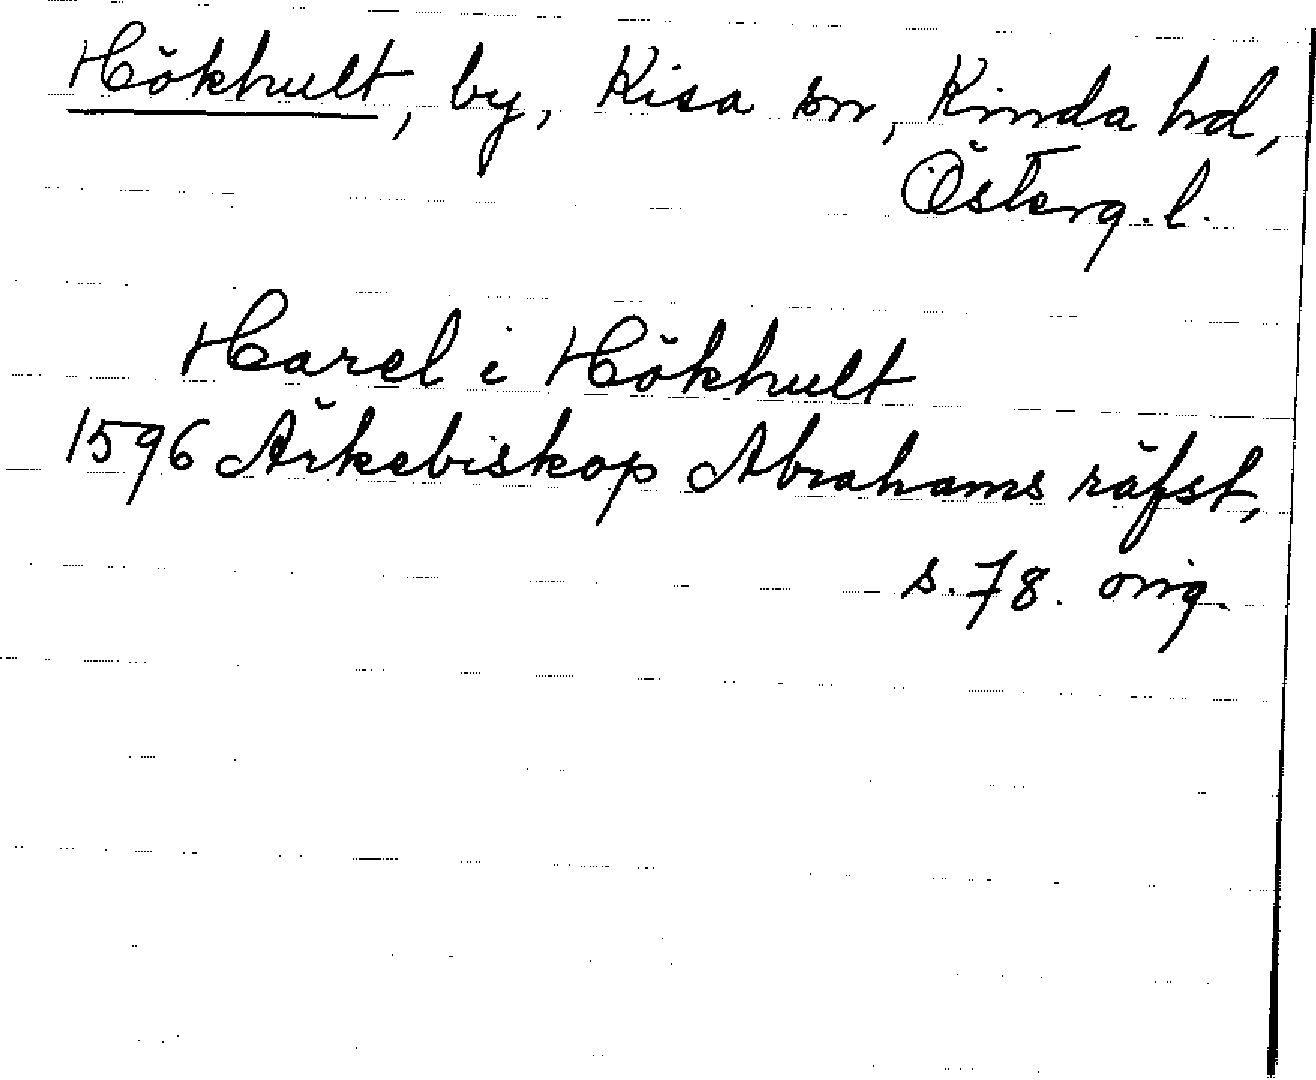 Hökhult, by, Kisa sn, Kinda hd,
Österg. l.
Harel i Hökhult
1596 Ärkebiskop Abrahams räfst,
s. 78. orig.